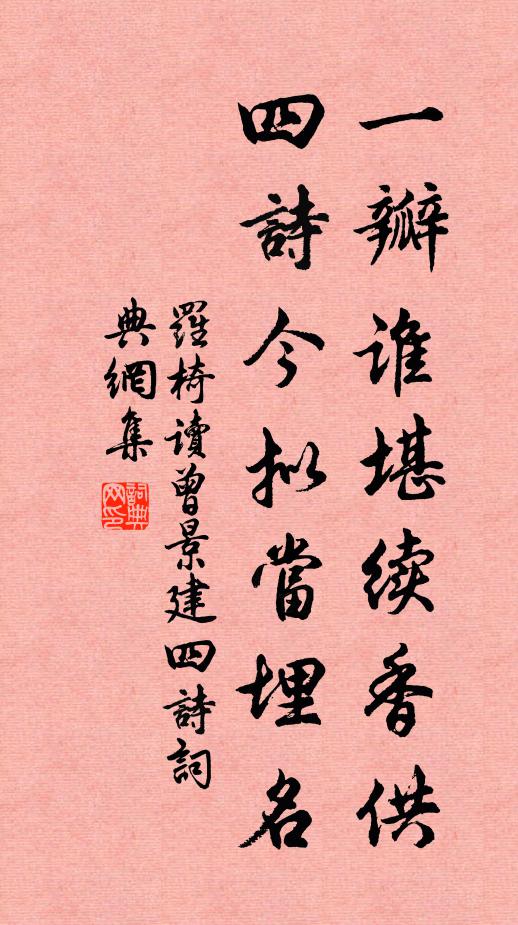 一瓣谁堪续香供
四詩今拟當埋名
羅椅讀曾景建四詩詞
典網集
詞典网印